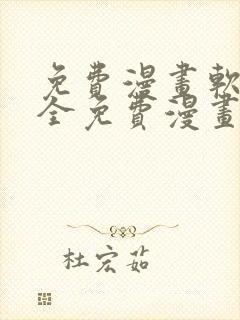 免費漫畫軟
全免費漫畫
杜宏茹